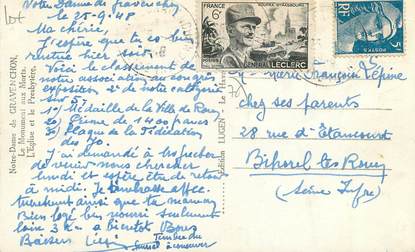 lot
Notre Dame de Gravenchon
le 25-9-48
Ma chérie,
J'espère que tu es bien
rentrée hier soir.
Voici le classement de
notre association au congrès
exposition 2e de notre catégorie
sur 5:
1° Médaille de la Ville de Rouen
2° Prime de 1400 francs
3° Plaque de la Fédération
J'ai demandé à
de venir nous chercher
lundi et espère être de retour
à midi. Je t'embrasse affec-
tueusement ainsi que ta maman
Bien logé bien nourri seulement
loin 3 Km à bientôt Bons
Baisers
Timbre du
à conserver
Notre-Dame de GRAVENCHON.
Le Monument aux Morts.
L'Église et le Presbytère.
Édition LUGEN - Le Havre
FRANCE
6F
KOUFRA STRASBOURG
GENERAL LECLERC
POSTES
RF
5F
Marie Françoise Lépine
chez ses parents
28 rue d'Étancourt
Bihorel les Rouen
(Seine Infre)